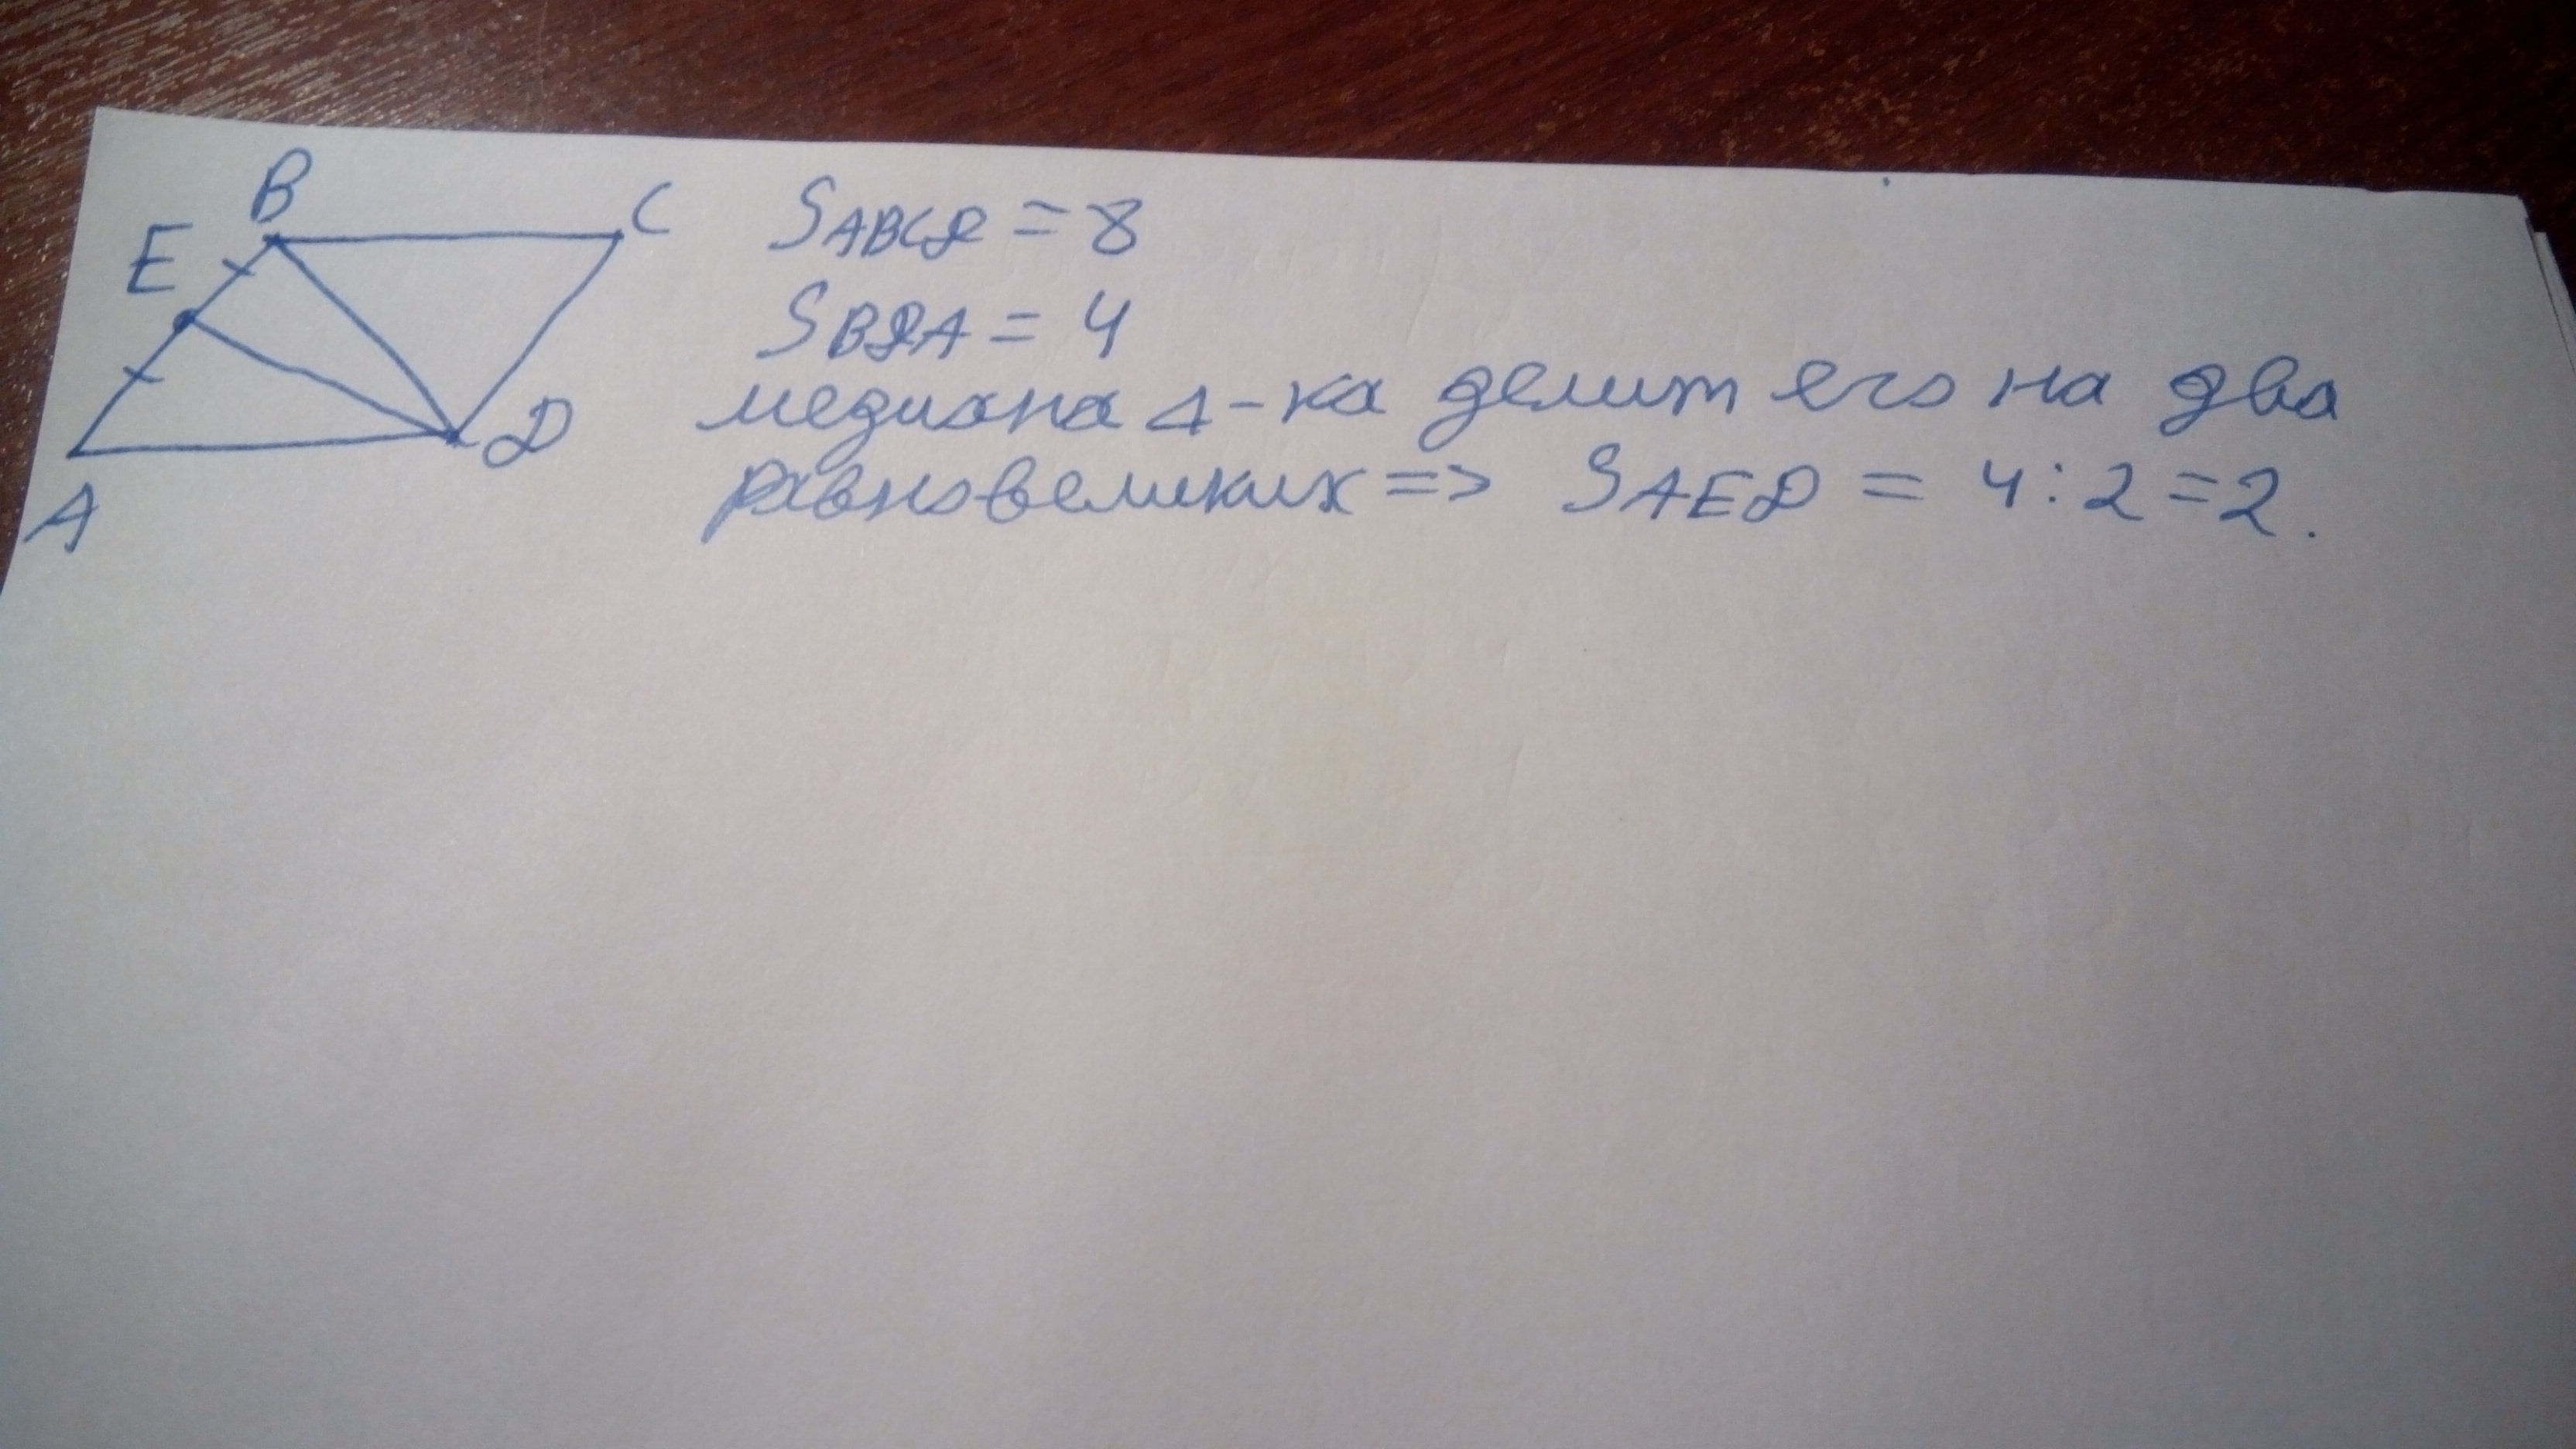 B
C
E
D
A
SABCD = 8
SBDA = 4
медиана Δ-ка делит его на два
равновеликих => SAED = 4:2=2.